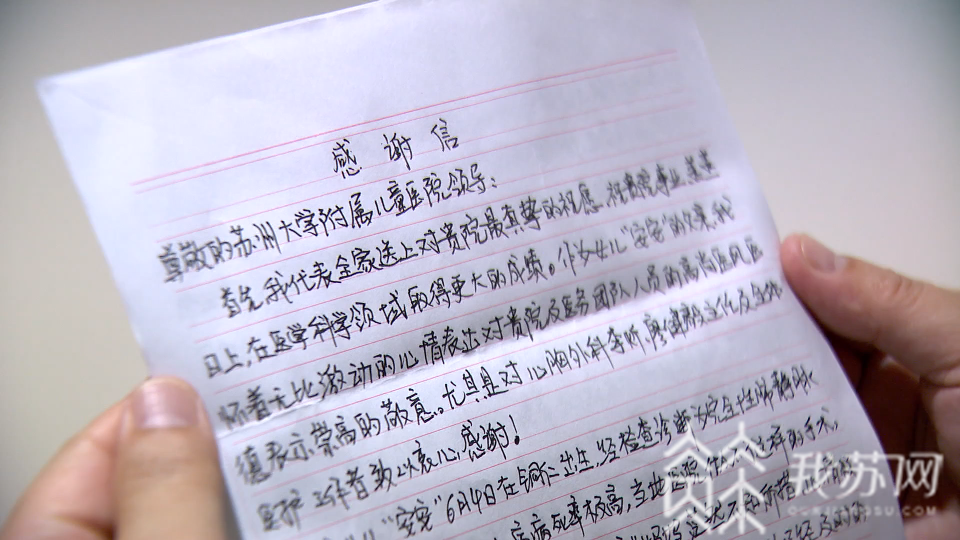 感谢信
尊敬的苏州大学附属儿童医院领导：
首先我代表全家送上对贵院最真挚的祝愿，祝贵院事业蒸蒸
日上，在医学科学领域取得更大的成绩。作为女儿“安安”的父亲，我
怀着无比激动的心情表达对贵院及医务团队人员的高尚医风医
德表示崇高的敬意。尤其是对心胸外科李炘、廖健毅主任及全体
医护工作者致以衷心感谢！
“安安”6月4日在铜仁出生，经检查诊断为完全性肺静脉
病死率极高，当地医院
我苏网
OURJIANGSU.COM